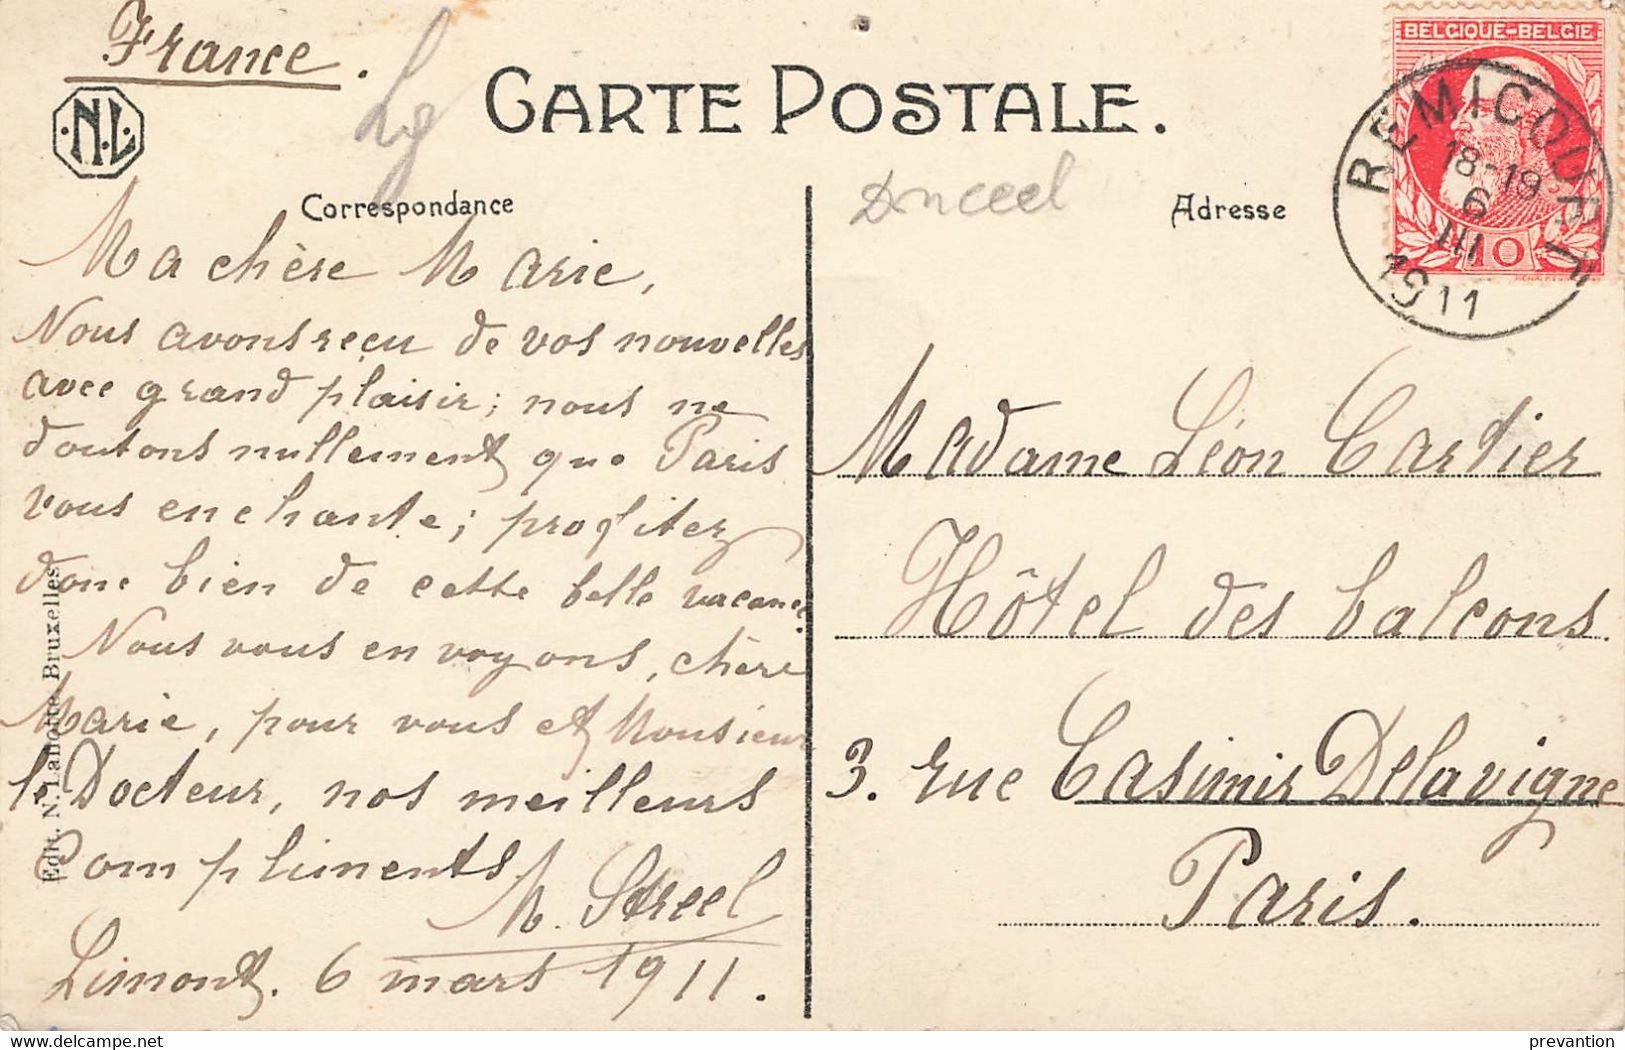 France.
N.L.
Lg
CARTE POSTALE.
Donceel
Correspondance
Adresse
BELGIQUE-BELGIE
10
REMICOURT
18-19
6
III
1911
Ma chère Marie,
Nous avons reçu de vos nouvelles
avec grand plaisir; nous ne
doutons nullement que Paris
vous enchante; profitez
donc bien de cette belle vacance.
Nous vous envoyons, chère
Marie, pour vous et Monsieur
le Docteur, nos meilleurs
compliments
M. Streel
Limont. 6 mars 1911.
Edit. N. Lahotte Bruxelles
Madame Léon Cartier
Hôtel des balcons.
3. rue Casimir Delavigne
Paris.
prevantion
www.delcampe.net